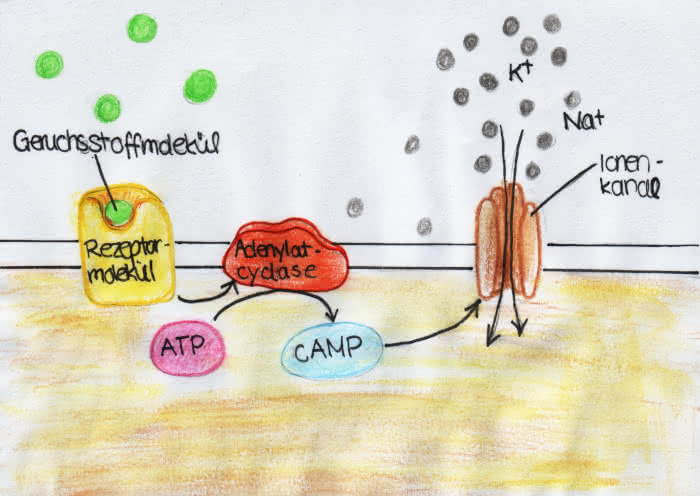 K+
Na+
Geruchsstoffmolekül
Ionen-
kanal
Rezeptor-
molekül
Adenylat-
cyclase
ATP
cAMP